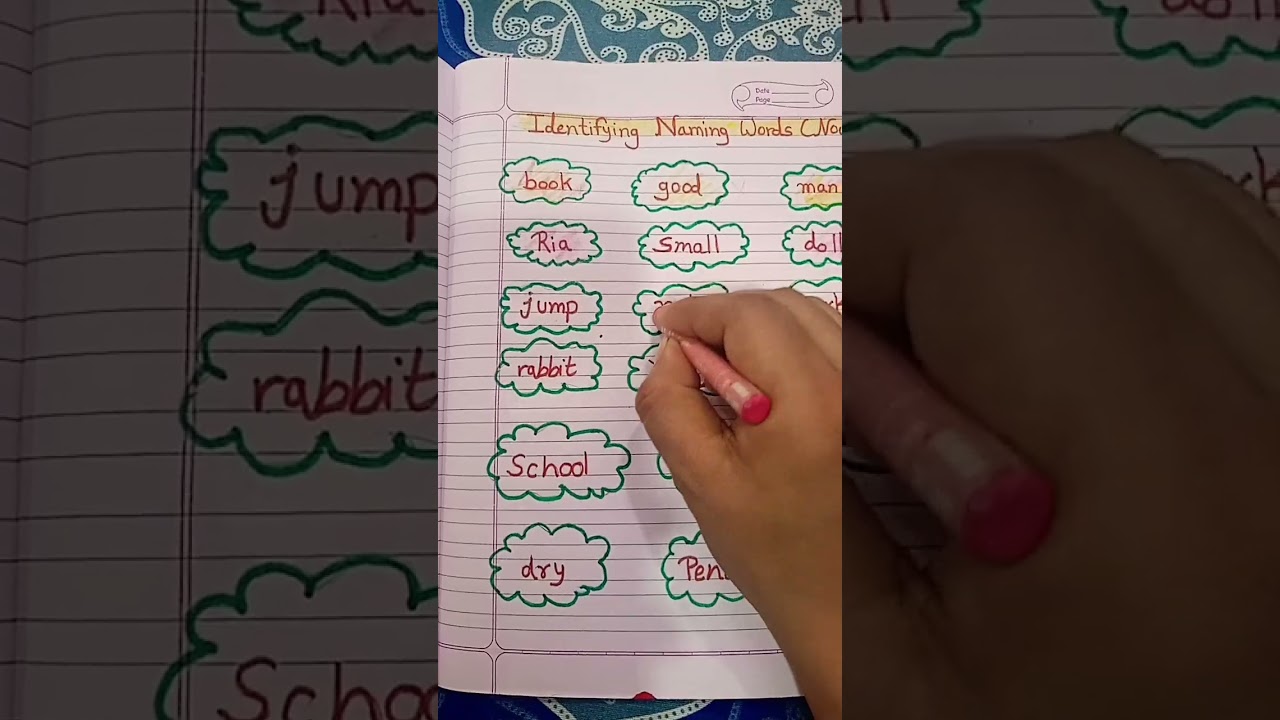 Date
Page
Identifying Naming Words
book good man
Ria Small doll
jump
rabbit
School
dry